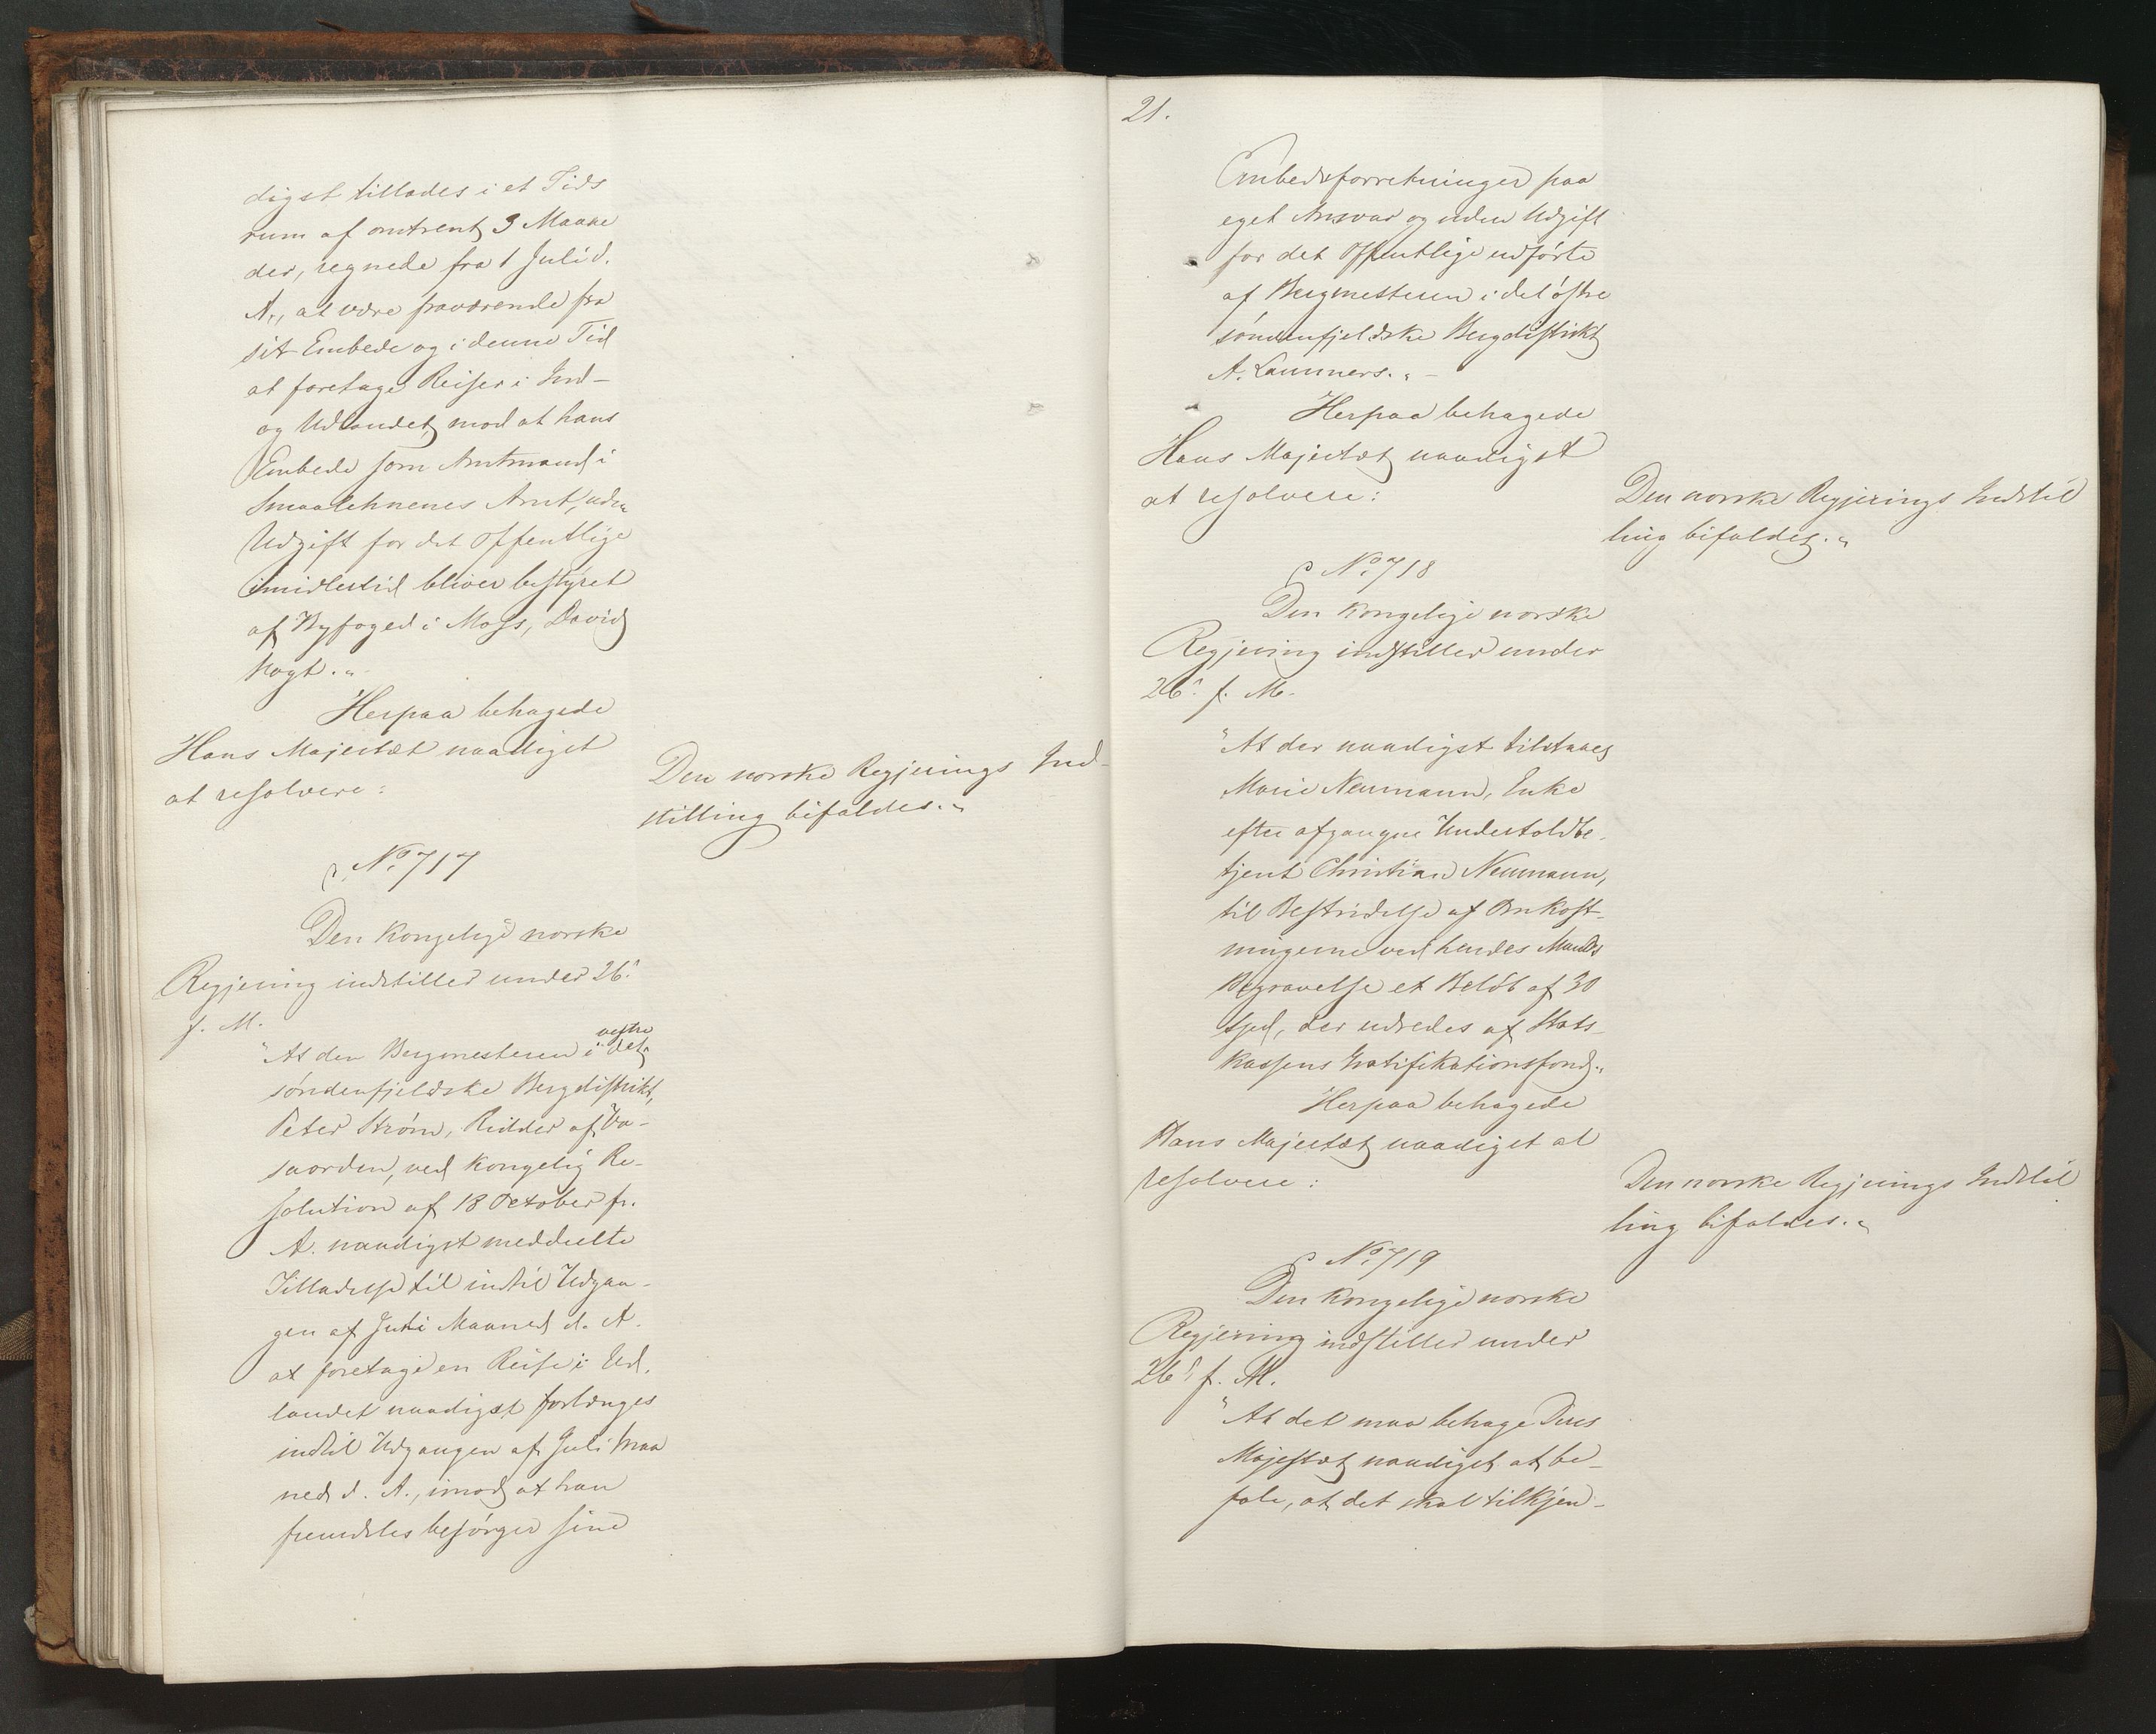 digst tillades i et Tids
rum af omtrent 3 Maane
der, regnede fra 1 Juli d.
A., at være fraværende fra
sit Embede og i denne Tid
at foretage Reiser i Ind-
og Udlandet, mod at hans
Embede som Amtmand i
Smaalehnenes Amt, uden
Udgift for det Offentlige
imidlertid bliver bestyret
af Byfoged i Moss, David
Vogt.„
Herpaa behagede
Hans Majestæt naadigst
at resolvere:
Den norske Regjerings Ind-
stilling bifaldes.„
No. 717
Den Kongelige norske
Regjering indstiller under 26.
f. M.
"At den Bergmesteren i det vestre
søndenfjeldske Bergdistrikt,
Peter Strøm, Ridder af Va-
saorden, ved Kongelig Re-
solution af 18 October fr.
A. naadigst meddeelte
Tilladelse til indtil Udgan-
gen af Juni Maaned d. A.
at foretage en Reise i Ud-
landet naadigst forlænges
indtil Udgangen af Juli Maa
ned d. A., imod at han
fremdeles besørger sine
21.
Embedsforretninger paa
eget Ansvar og uden Udgift
for det Offentlige udførte
af Bergmesteren i det østre
søndenfjeldske Bergdistrikt
A. Lammers.„-
Herpaa behagede
Hans Majestæt naadigst
at resolvere:
Den norske Regjerings Indstil
ling bifaldes.„
No. 718
Den Kongelige norske
Regjering indstiller under
26. f. M.
"At der naadigst tilstaaes
Marie Neumann, Enke
efter afgangne Undertoldbe-
tjent Christian Neumann,
til Bestridelse af Omkost-
ningerne ved hendes Mands
Begravelse et Beløb af 30
Spd, der udredes af Stats-
kassens Gratifikationsfond„
Herpaa behagede
Hans Majestæt naadigst at
resolvere:
Den norske Regjerings Indstil
ling bifaldes.„
No. 719
Den Kongelige norske
Regjering indstiller under
26. f. M.
"At det maa behage Deres
Majestæt naadigst at be-
fale, at det skal tilkjen-